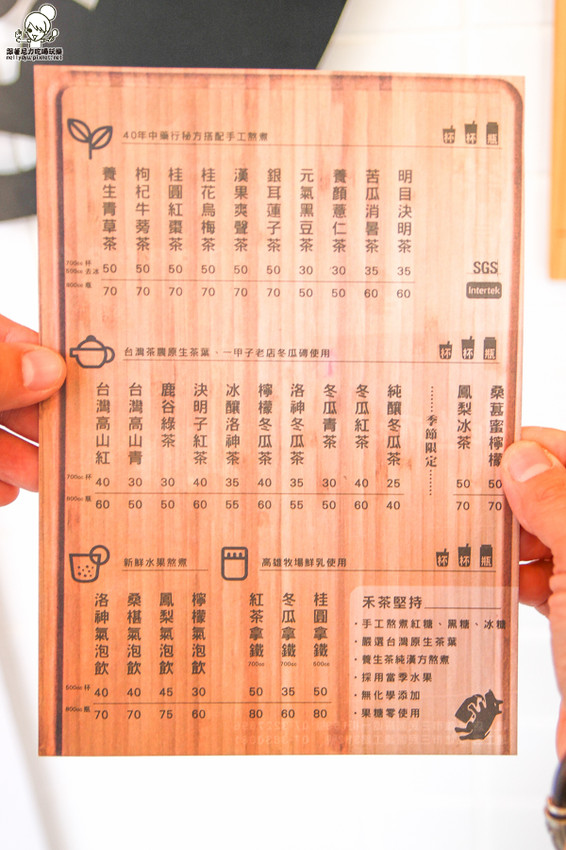 跟著尼力吃喝玩樂
nellydyu.pixnet.net
40年中藥行秘方搭配手工熬煮
杯 杯 瓶
養生青草茶
枸杞牛蒡茶
桂圓紅棗茶
桂花烏梅茶
漢果爽聲茶
銀耳蓮子茶
元氣黑豆茶
養顏薏仁茶
苦瓜消暑茶
明目決明茶
700cc 杯
500cc 去冰 50 50 50 50 50 50 30 30 35 35
800cc 瓶 70 70 70 70 70 70 50 50 60 60
SGS
Intertek
台灣茶農原生茶葉、一甲子老店冬瓜磚使用
杯 杯 瓶
台灣高山紅
台灣高山青
鹿谷綠茶
決明子紅茶
冰釀洛神茶
檸檬冬瓜茶
洛神冬瓜茶
冬瓜青茶
冬瓜紅茶
純釀冬瓜茶
季節限定
鳳梨冰茶
桑葚蜜檸檬
700cc 杯 40 30 30 40 35 40 35 30 40 25 50 50
800cc 瓶 60 50 50 60 55 60 55 50 60 40 70 70
新鮮水果熬煮
高雄牧場鮮乳使用
杯 杯 瓶
洛神氣泡飲
桑椹氣泡飲
鳳梨氣泡飲
檸檬氣泡飲
紅茶拿鐵 700cc
冬瓜拿鐵 700cc
桂圓拿鐵 500cc
500cc 杯 40 40 45 30 50 35 50
800cc 瓶 70 70 75 60 80 60 80
禾茶堅持
・手工熬煮紅糖、黑糖、冰糖
・嚴選台灣原生茶葉
・養生茶純漢方熬煮
・採用當季水果
・無化學添加
・果糖零使用